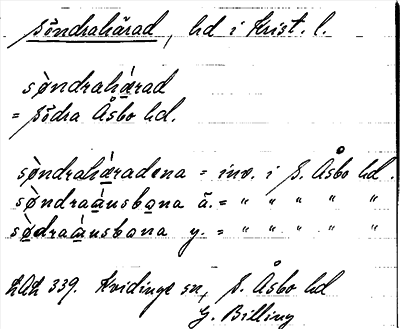 Söndrahärad, hd i Krist. l.
sòndrahá̤rad
= Södra Åsbo hd.
sòndraháradena = inv. i S. Åsbo hd.
sòndraá̤nsbona ä. = " " " " "
sò̤draá̤nsbona y. = " " " " "
339. Kvidinge sn, S. Åsbo hd
G. Billing